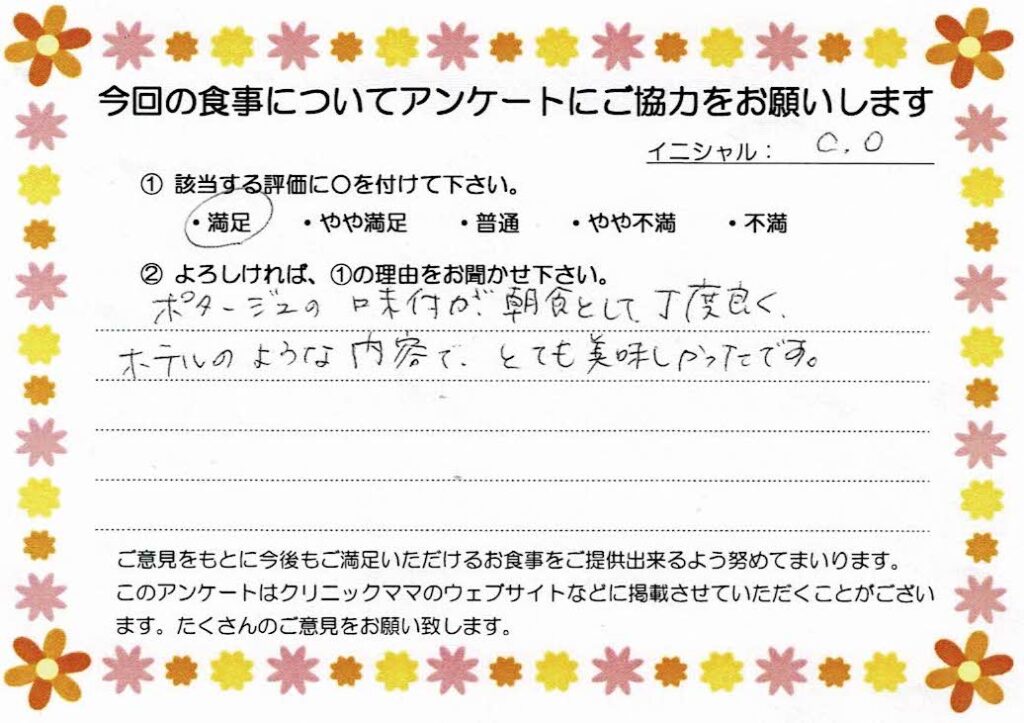 今回の食事についてアンケートにご協力をお願いします
イニシャル： C.O
① 該当する評価に〇を付けて下さい。
・満足 ・やや満足 ・普通 ・やや不満 ・不満
② よろしければ、①の理由をお聞かせ下さい。
ポタージュの味付が、朝食として丁度良く、
ホテルのような内容で、とても美味しかったです。
ご意見をもとに今後もご満足いただけるお食事をご提供出来るよう努めてまいります。
このアンケートはクリニックママのウェブサイトなどに掲載させていただくことがござい
ます。たくさんのご意見をお願い致します。